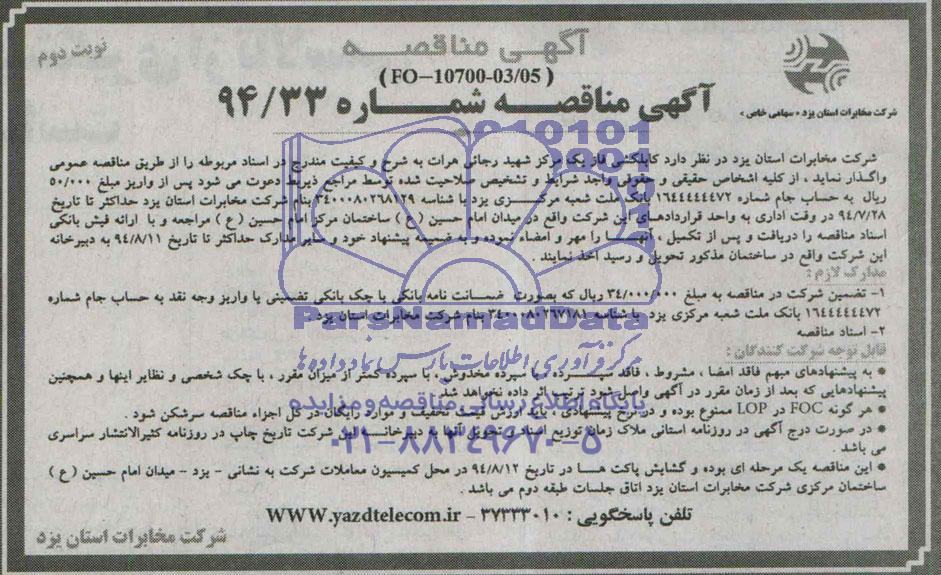 آگهی مناقصه
نوبت دوم
( FO-10700-03/05 )
آگهی مناقصه شماره ۹۴/۳۳
شرکت مخابرات استان یزد « سهامی خاص »
شرکت مخابرات استان یزد در نظر دارد کابلکشی فاز یک مرکز شهید رجائی هرات به شرح و کیفیت مندرج در اسناد مربوطه را از طریق مناقصه عمومی
واگذار نماید ، از کلیه اشخاص حقیقی و حقوقی واجد شرایط و تشخیص صلاحیت شده توسط مراجع ذیربط دعوت می شود پس از واریز مبلغ ۵۰/۰۰۰
ریال به حساب جام شماره ۱۶۴۴۴۴۴۴۷۲ بانک ملت شعبه مرکزی یزد با شناسه ۳۴۰۰۰۸۰۲۶۸۱۲۹ بنام شرکت مخابرات استان یزد حداکثر تا تاریخ
۹۴/۷/۲۸ در وقت اداری به واحد قراردادهای این شرکت واقع در میدان امام حسین ( ع ) ساختمان مرکز امام حسین ( ع ) مراجعه و با ارائه فیش بانکی
اسناد مناقصه را دریافت و پس از تکمیل ، آنها را مهر و امضاء نموده و به ضمیمه پیشنهاد خود و سایر مدارک حداکثر تا تاریخ ۹۴/۸/۱۱ به دبیرخانه
این شرکت واقع در ساختمان مذکور تحویل و رسید اخذ نمایند .
مدارک لازم :
۱- تضمین شرکت در مناقصه به مبلغ ۳۴/۰۰۰/۰۰۰ ریال که بصورت ضمانت نامه بانکی یا چک بانکی تضمینی یا واریز وجه نقد به حساب جام شماره
۱۶۴۴۴۴۴۴۷۲ بانک ملت شعبه مرکزی یزد با شناسه ۳۴۰۰۰۸۰۲۶۷۱۸۱ بنام شرکت مخابرات استان یزد
۲- اسناد مناقصه
قابل توجه شرکت کنندگان :
* به پیشنهادهای مبهم فاقد امضا ، مشروط ، فاقد سپرده ، با سپرده مخدوش ، با سپرده کمتر از میزان مقرر ، با چک شخصی و نظایر اینها و همچنین
پیشنهادهایی که بعد از زمان مقرر در آگهی واصل شود ترتیب اثر داده نخواهد شد
* هر گونه FOC در LOP ممنوع بوده و در نرخ پیشنهادی ، باید ارزش قیمت تخفیف و موارد رایگان در کل اجزاء مناقصه سرشکن شود .
* در صورت درج آگهی در روزنامه استانی ملاک زمان توزیع اسناد و تحویل آنها به دبیرخانه این شرکت تاریخ چاپ در روزنامه کثیرالانتشار سراسری
می باشد .
* این مناقصه یک مرحله ای بوده و گشایش پاکت ها در تاریخ ۹۴/۸/۱۲ در محل کمیسیون معاملات شرکت به نشانی - یزد - میدان امام حسین ( ع )
ساختمان مرکزی شرکت مخابرات استان یزد اتاق جلسات طبقه دوم می باشد .
تلفن پاسخگویی : ۳۷۲۳۳۰۱۰ - WWW.yazdtelecom.ir
شرکت مخابرات استان یزد
ParsNamadData
مرکز فرآوری اطلاعات پارس نماد داده ها
پایگاه اطلاع رسانی مناقصه و مزایده
۰۲۱-۸۸۳۴۹۶۷۰-۵